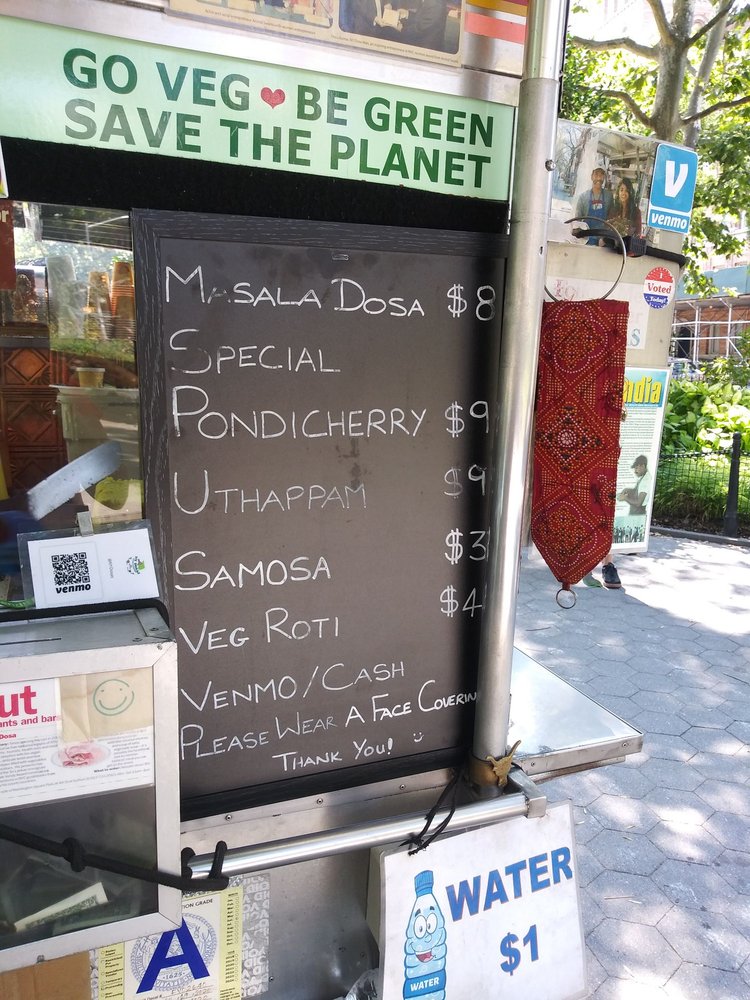 GO VEG ❤ BE GREEN
SAVE THE PLANET
venmo
I Voted
Today!
MASALA DOSA $8
SPECIAL
PONDICHERRY $9
UTHAPPAM $9
SAMOSA $3
VEG ROTI $4
VENMO/CASH
PLEASE WEAR A FACE COVERIN
THANK YOU!
venmo
ut
ants and bar
Dosa
ndia
WATER
$1
WATER
A